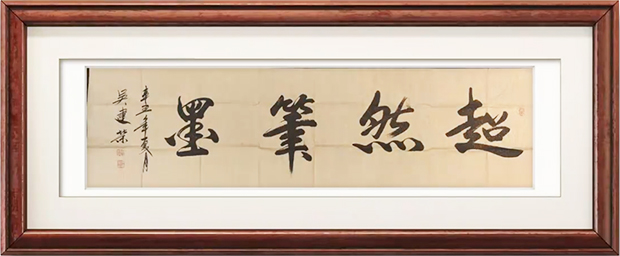 超然筆墨
辛丑年夏月
吴建荣